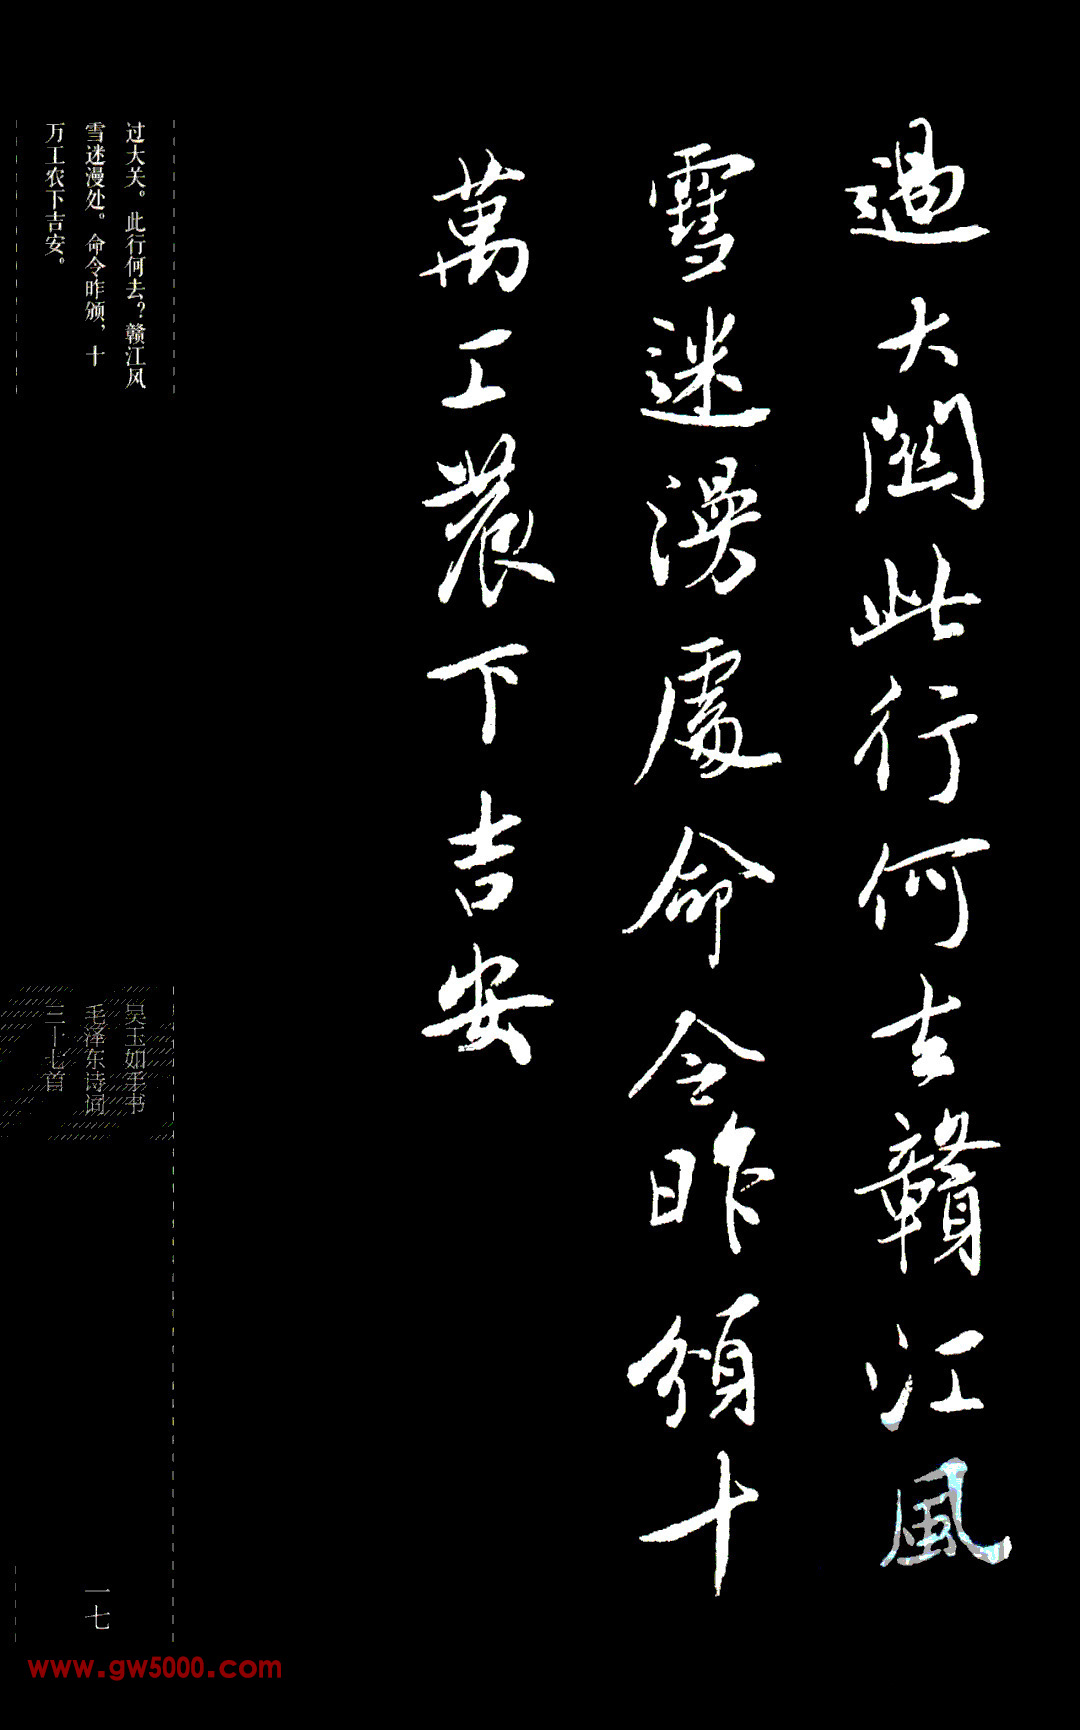 過大關此行何去贛江風
雪迷漫處命令昨頒十
萬工農下吉安
过大关。此行何去？赣江风
雪迷漫处。命令昨颁，十
万工农下吉安。
吴玉如手书
毛泽东诗词
三十七首
一七
www.gw5000.com